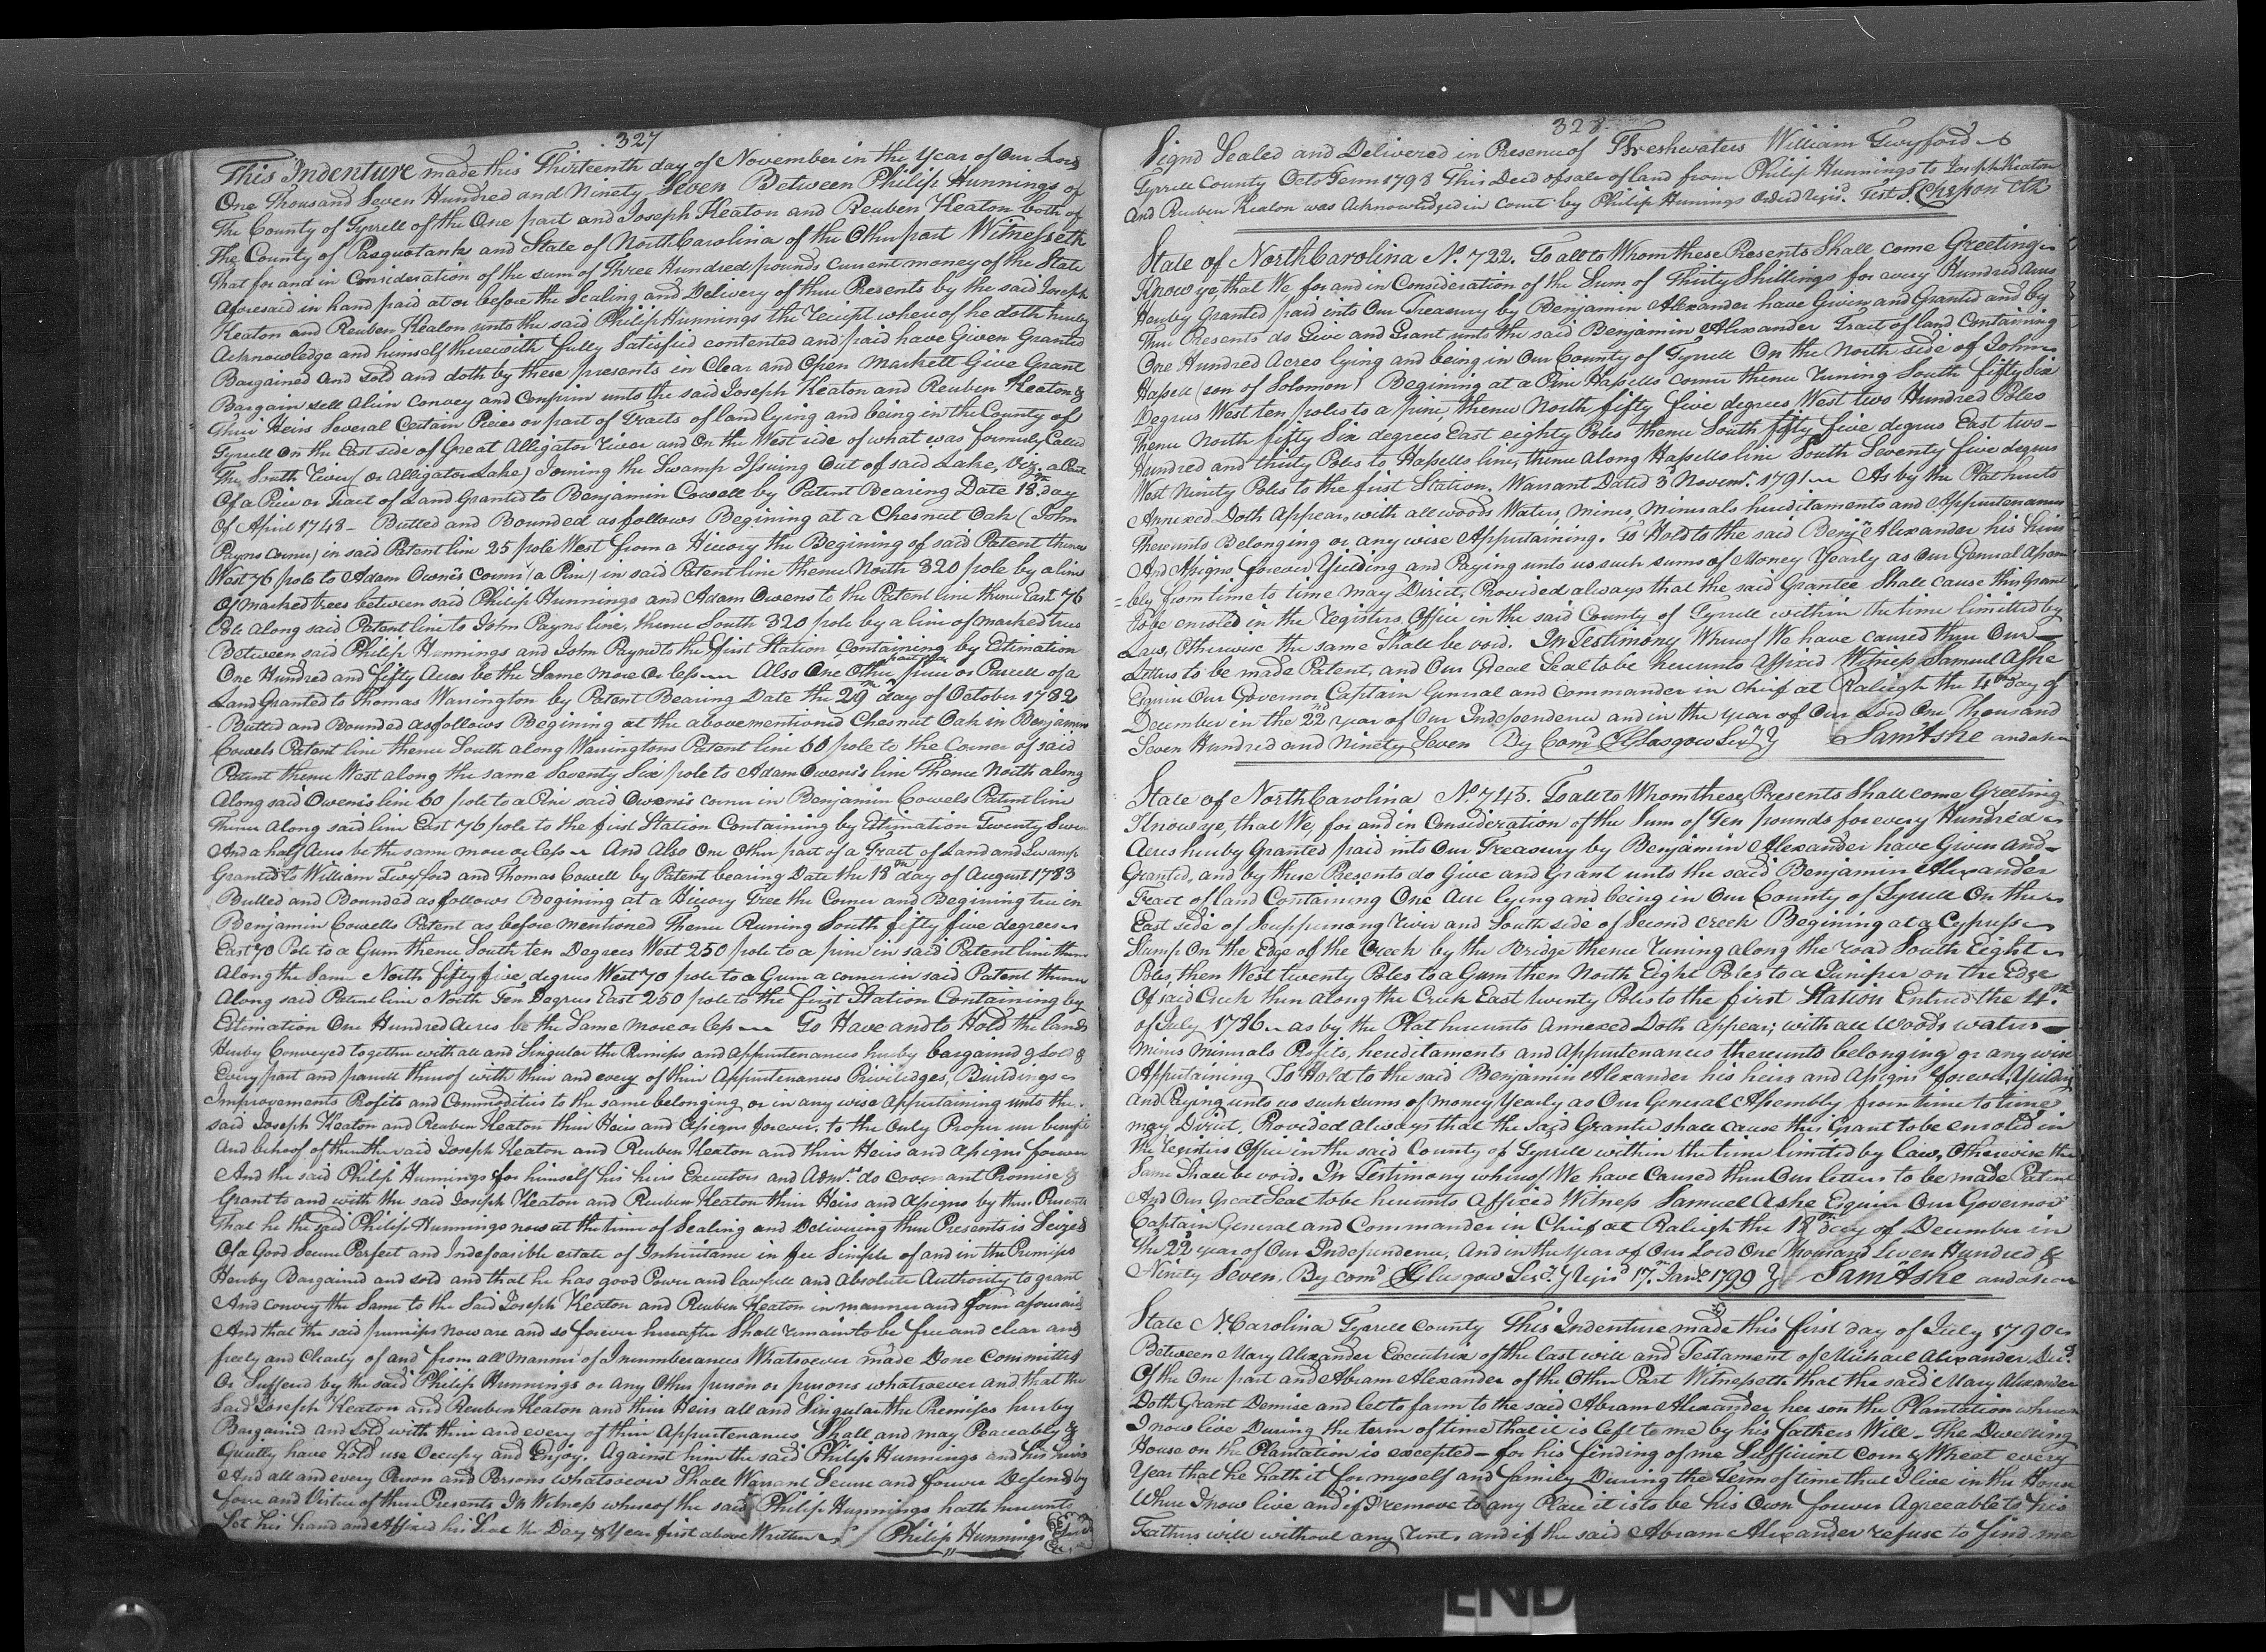 327
This Indenture made this Thirteenth day of November in the Year of Our Lord
One Thousand Seven Hundred and Ninety Seven Between Philip Hunnings of
The County of Tyrrell of the One part and Joseph Keaton and Reuben Keaton both of
The County of Pasquotank and State of North Carolina of the Other part Witnesseth
That for and in Consideration of the sum of Three Hundred pounds Current money of the State
Aforesaid in hand paid at or before the Sealing and Delivery of these Presents by the said Joseph
Keaton and Reuben Keaton unto the said Philip Hunnings the receipt whereof he doth hereby
Acknowledge and himself therewith fully Satisfied contented and paid have Given Granted
Bargained and Sold and doth by these presents in Clear and Open Markett Give Grant
Bargain sell Alien Convey and Confirm unto the said Joseph Keaton and Reuben Keaton &
Their Heirs Several Certain Pieces or part of Tracts of land lying and being in the County of
Tyrrell On the East side of Great Alligator River and On the West side of what was formerly Called
The South River (or Alligator Lake) Joining the Swamp Issuing Out of said Lake, Viz. a Part
Of a Piece or Tract of Land Granted to Benjamin Cowell by Patent Bearing Date 18th day
Of April 1748 - Butted and Bounded as follows Begining at a Chesnut Oak (John
Payns corner) in said Patent line 25 pole West from a Hicory the Begining of said Patent thence
West 76 pole to Adam Owens's Corner (a Pine) in said Patent line thence North 320 pole by a line
Of marked trees between said Philip Hunnings and Adam Owens to the Patent line thence East 76
Pole along said Patent line to John Payns line, thence South 320 pole by a line of marked trees
Between said Philip Hunnings and John Payne to the first Station Containing by Estimation
One Hundred and fifty Acres be the Same More Or less Also One Other part of a piece or Parcell of a
Land Granted to Thomas Warrington by Patent Bearing Date the 29th day of October 1782
Butted and Bounded as follows Begining at the above mentioned Chesnut Oak in Benjamin
Cowels Patent line thence South along Waringtons Patent line 60 pole to the Corner of said
Patent thence West along the same Seventy Six pole to Adam Owens's line Thence North along
Along said Owens's line 60 pole to a Pine said Owens's corner in Benjamin Cowels Patent line
Thence along said line East 76 pole to the first Station Containing by Estimation Twenty Seven
And a half Acres be the same more or less And Also One Other part of a Tract of Land and Swamp
Granted to William Twyford and Thomas Cowell by Patent bearing Date the 18th day of August 1783
Butted and Bounded as follows Begining at a Hicory Tree the Corner and Begining tree in
Benjamin Cowells Patent as before mentioned Thence Runing South fifty five degrees
East 70 Pole to a Gum thence South ten Degrees West 250 pole to a pine in said Patent line thence
Along the Same North fifty five degrees West 70 pole to a Gum a corner in said Patent thence
Along said Patent line North Ten Degrees East 250 pole to the first Station Containing by
Estimation One Hundred Acres be the Same more or less To Have and to Hold the lands
Hereby Conveyed together with all and Singular the Premises and Appurtenances hereby bargained & Sold &
Every part and parcell thereof with their and every of their Appurtenances Priviledges, Buildings
Improvements Profits and Commodities to the same belonging or in any wise Appurtaining unto the
said Joseph Keaton and Reuben Keaton their Heirs and Assigns forever, to the Only Proper use benefit
And behoof of them the said Joseph Keaton and Reuben Keaton and their Heirs and Assigns forever
And the said Philip Hunnings for himself his heirs Executors and Admrs. do Covenant Promise &
Grant to and with the said Joseph Keaton and Reuben Keaton their Heirs and Assigns by these Presents
That he the said Philip Hunnings now at the time of Sealing and Delivering these Presents is Seized
Of a Good Secure Perfect and Indefeasible estate of Inheritance in fee Simple of and in the Premises
Hereby Bargained and sold and that he has good Power and lawfull and Absolute Authority to grant
And convey the Same to the Said Joseph Keaton and Reuben Keaton in manner and form aforesaid
And that the said premises now are and so forever hereafter Shall remain to be free and clear and
freely and Clearly of and from all Manner of Incumberances Whatsoever made Done Committed
Or Sufferd by the said Philip Hunnings or any Other person or persons whatsoever and that the
Said Joseph Keaton and Reuben Keaton and their Heirs all and Singular the Premises hereby
Bargained and Sold with their and every of their Appurtenances Shall and may Peaceably &
Quietly have hold use Occupy and Enjoy. Against him the said Philip Hunnings and his heirs
And all and every Person and Persons whatsoever Shall Warrant Secure and forever Defend by
force and Virtue of these Presents In Witness whereof the said Philip Hunnings hath hereunto
Set his hand and Affixed his Seal the Day & Year first above Written Philip Hunnings Seal
328
Signd Sealed and Delivered in Presence of Freshwaters William Twyford
Tyrrell County Octo Term 1798 This Deed of sale of land from Philip Hunnings to Joseph Keaton
And Reuben Keaton was Acknowledged in Court by Philip Hunnings Orderd Regisd. Test S. Chesson Clk
State of North Carolina No. 722. To all to Whom these Presents Shall come Greeting
Know ye, that We for and in Consideration of the Sum of Thirty Shillings for every Hundred Acres
Hereby Granted paid into Our Treasury by Benjamin Alexander have Given and Granted and by
These Presents do Give and Grant unto the said Benjamin Alexander Tract of land Containing
One Hundred Acres lying and being in Our County of Tyrrell On the North side of John
Hassell (son of Solomon) Begining at a Pine Hassells corner thence runing South fifty Six
Degrees West ten poles to a pine, thence North fifty five degrees West two Hundred Poles
Thence North fifty Six degrees East eighty Poles thence South fifty five degrees East two
Hundred and thirty Poles to Hassells line, thence along Hassells line South Seventy five degrees
West Ninety Poles to the first Station. Warrant Dated 3 Novemr. 1791 As by the Plat hereto
Annexed Doth Appear, with all woods Waters, Mines, Minerals hereditaments and Appurtenances
Thereunto Belonging or any wise Appurtaining. To Hold to the said Benjn. Alexander his heirs
And Assigns forever Yielding and Paying unto us such sums of Money Yearly as Our General Assem
=bly from time to time May Direct, Provided always that the said Grantee Shall Cause this Grant
To be enroled in the Registers Office in the said County of Tyrrell within the time limitted by
Law, Otherwise the same Shall be void. In Testimony Whereof We have caused these Our
Letters to be made Patent, and Our Great Seal to be hereunto Affixed Witness Samuel Ashe
Esquire Our Governor Captain General and Commander in Chief at Raleigh the 4th day of
December in the 22nd year of Our Independence and in the year of Our Lord One thousand
Seven Hundred and Ninety Seven By Comd. JGlasgow Secy. Saml Ashe
State of North Carolina No. 745. To all to Whom these Presents Shall come Greeting
Know ye, that We, for and in Consideration of the Sum of Ten pounds for every Hundred
Acres hereby Granted paid into Our Treasury by Benjamin Alexander have Given and
Granted, and by these Presents do Give and Grant unto the said Benjamin Alexander
Tract of land Containing One Acre lying and being in Our County of Tyrrell On the
East Side of Scuppernong River and South side of Second Creek Begining at a Cypress
Stump On the Edge of the Creek by the Bridge thence runing along the road South Eight
Poles, then West twenty Poles to a Gum then North Eight Poles to a Juniper on the Edge
Of said Creek then along the Creek East twenty Poles to the first Station Entred the 4th
of July 1786 as by the Plat hereunto Annexed Doth Appear; with all Woods waters
Mines Minerals Profits, hereditaments and Appurtenances thereunto belonging or any wise
Appurtaining To Hold to the said Benjamin Alexander his heirs and Assigns forever, Yielding
And Paying unto us such sums of money Yearly as Our General Assembly from time to time
may Direct, Provided always that the said Grantee shall cause this Grant to be enroled in
The Registers Office in the said County of Tyrrell within the time limited by law, Otherwise the
Same Shall be void. In Testimony whereof We have Caused these Our letters to be made Patent
And Our Great Seal to be hereunto Affixed Witness Samuel Ashe Esquire Our Governor
Captain General and Commander in Chief at Raleigh the 18th day of December in
the 22d year of Our Independence, And in the Year of Our Lord One thousand Seven Hundred &
Ninety Seven, By comd JGlasgow Secy. Regisd 17th Jany 1799 Saml Ashe
State N. Carolina Tyrrell County This Indenture made this first day of July 1790
Between Mary Alexander Executrix of the last will and Testament of Michael Alexander Decd.
Of the One part and Abram Alexander of the Other Part Witnesseth that the said Mary Alexander
Doth Grant Demise and let to farm to the said Abram Alexander her son the Plantation whereon
I now live During the term of time that it is left to me by his fathers Will - The Dwelling
House on the Plantation is excepted - for his finding of me Sufficient Corn & Wheat every
Year that he hath it for myself and family During the Term of time that I live in the House
Where I now live and if I remove to any Place it is to be his Own forever Agreeable to his
Fathers will without any rent, and if the said Abram Alexander refuse to find me
END